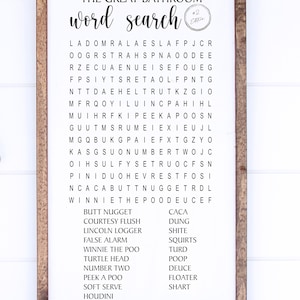 THE GREAT BATHROOM
word search
#2
L A D O M R A L A E S L A F P J C R
O O G R S T R A H S P N A O O D E E
R Z E C U A E N U E I S E F O U E G
F P S I Y T S R E T A O L F P N T G
N T T D A E H E L T R U T K Z G I O
M F R Q O Y I U L I N C P A H I H L
M U I H R F K I P E E K A P O O S N
G U U T M S R U M E I E X I E U J L
M G Q B U K G P A I E F X T G Z Y O
K A S G S U O N U M B E R T W O J C
O I H S U L F Y S E T R U O C F S N
P I N I D U O H E V R E S T F O S I
N C A C A B U T T N U G G E T R D L
W I N N I E T H E P O O D E U C E F
BUTT NUGGET
COURTESY FLUSH
LINCOLN LOGGER
FALSE ALARM
WINNIE THE POO
TURTLE HEAD
NUMBER TWO
PEEK A POO
SOFT SERVE
HOUDINI
CACA
DUNG
SHITE
SQUIRTS
TURD
POOP
DEUCE
FLOATER
SHART